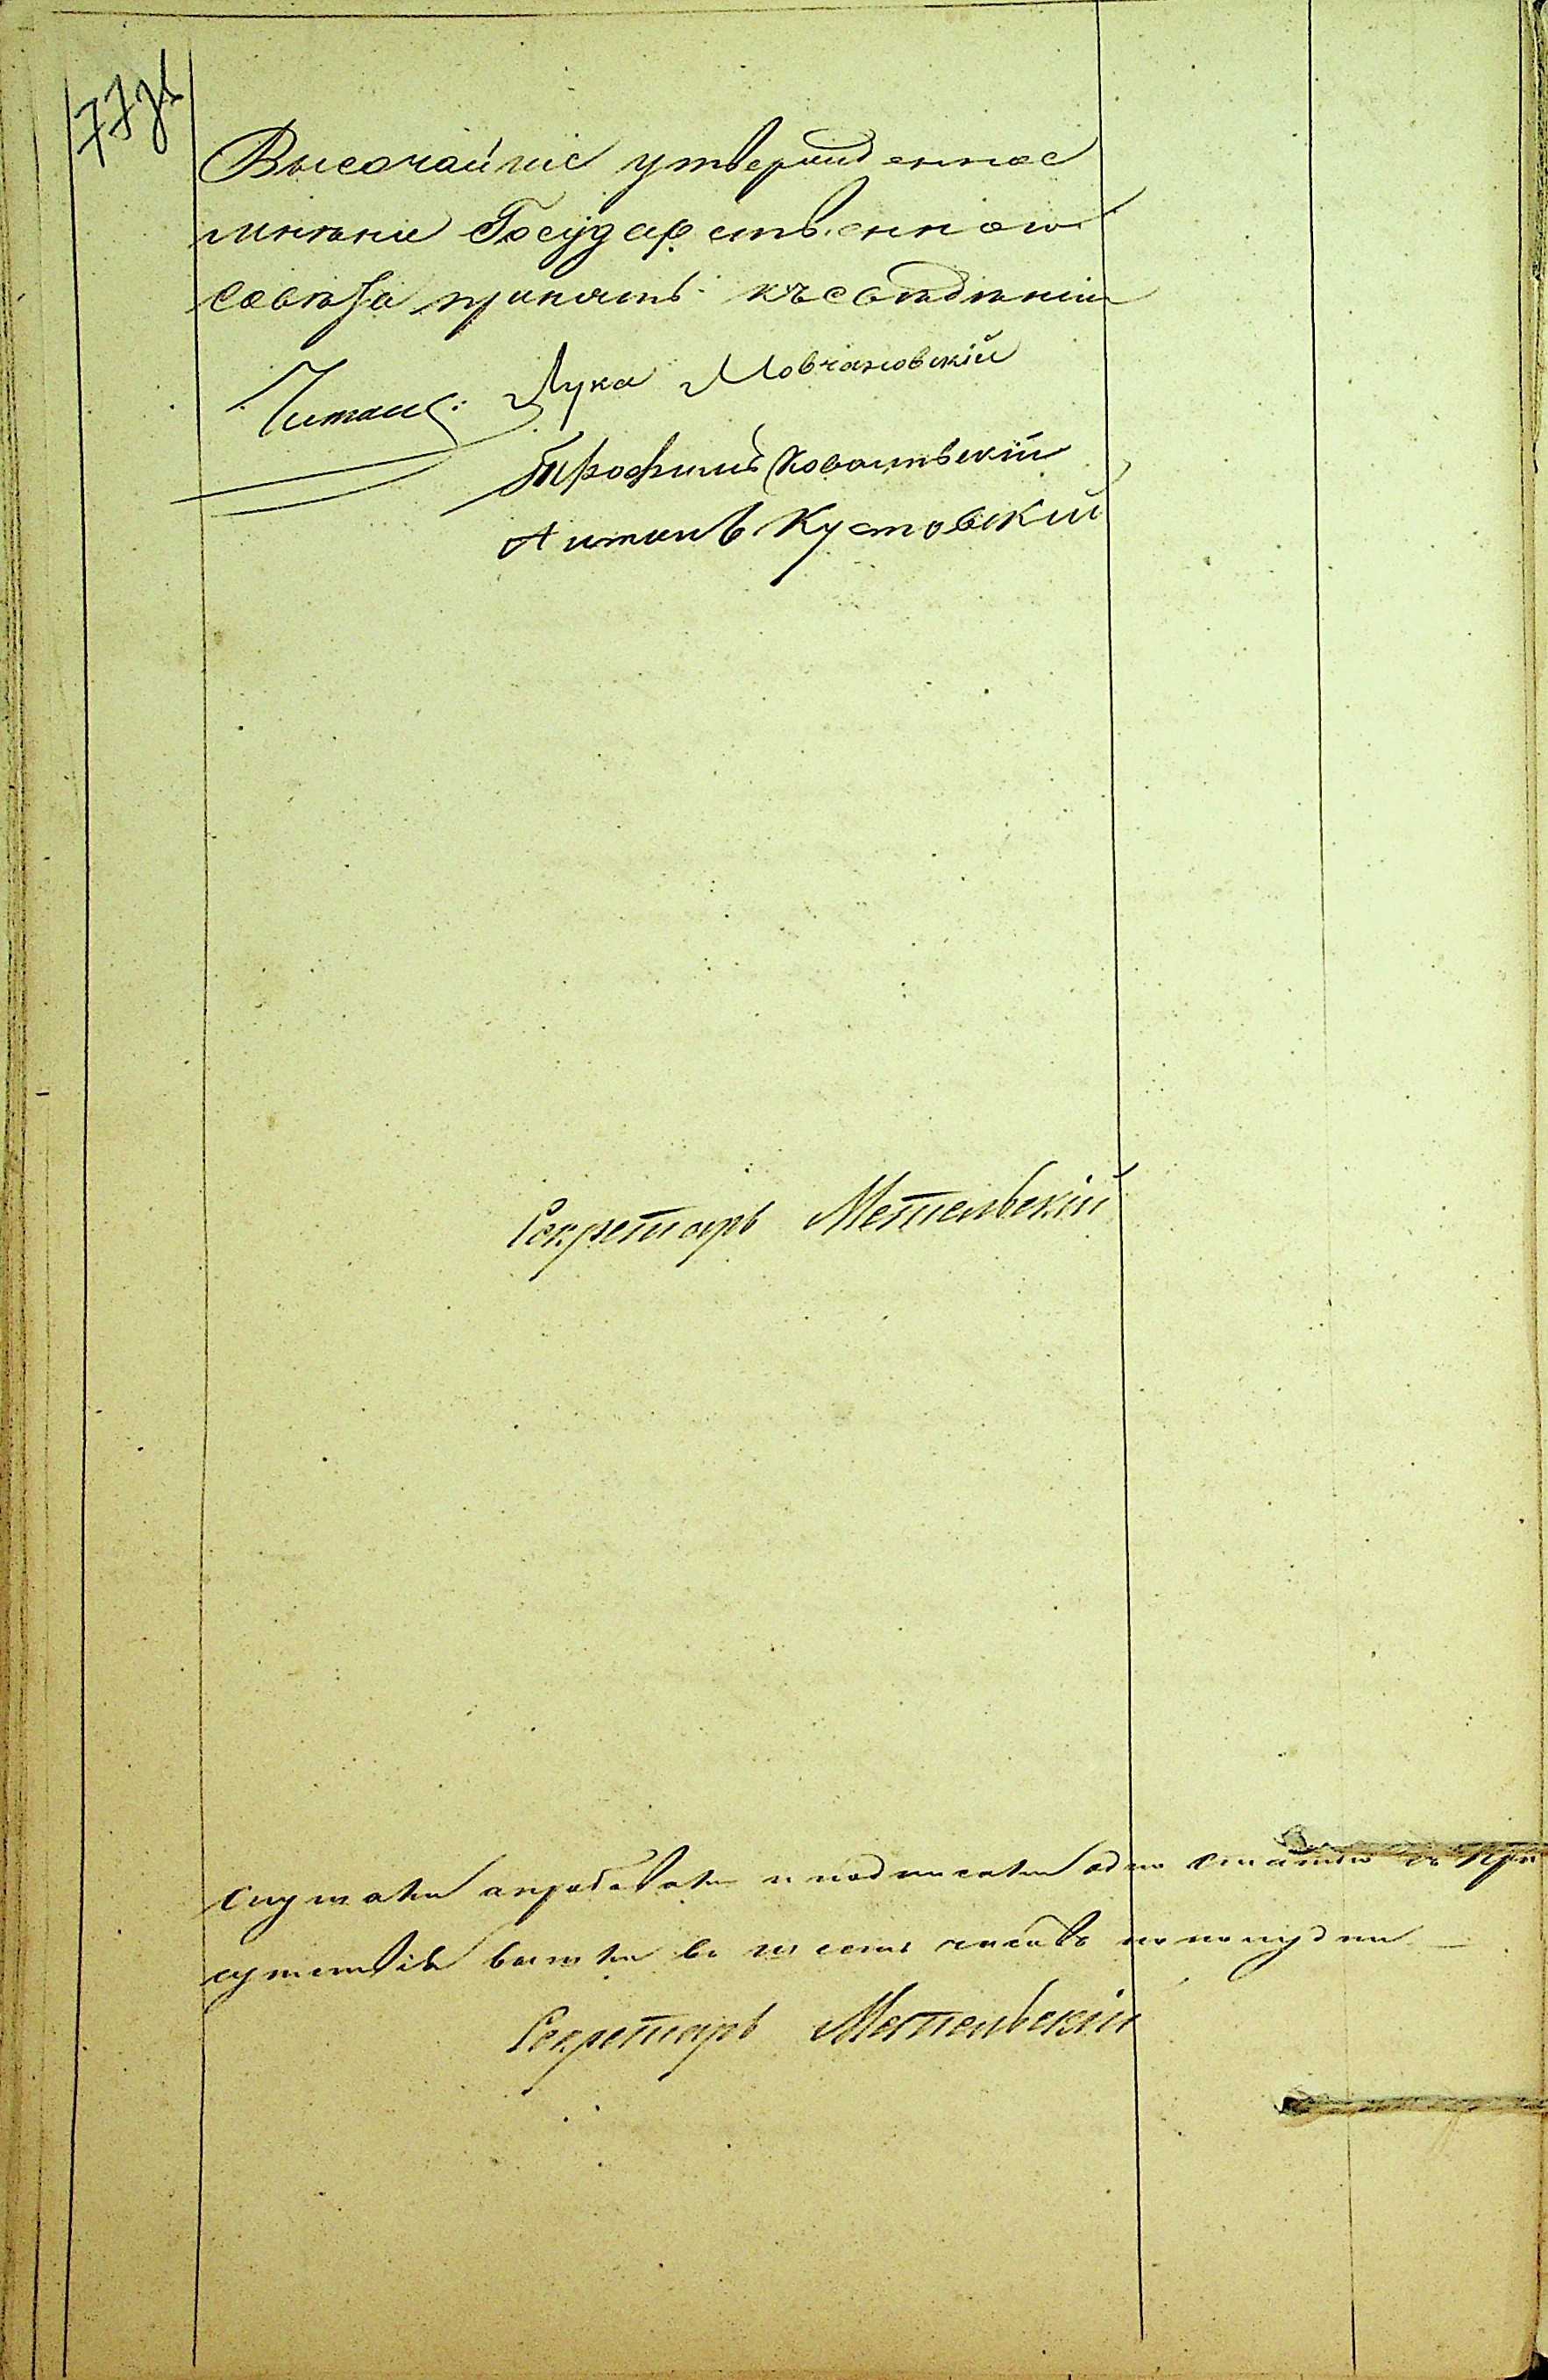 77 зв
Высочайше утвержденное
мнѣніе Государственнаго
Совѣта принять къ свѣдѣнію
Читалъ: Лука Мовчановскій
Трофимъ Ковалевскій
Антонъ Кустовскій
Секретарь Метельскій
Слушали апробовали и подписали одну статью изъ при
сутствія вышли въ шесть часовъ по полудни
Секретарь Метельскій